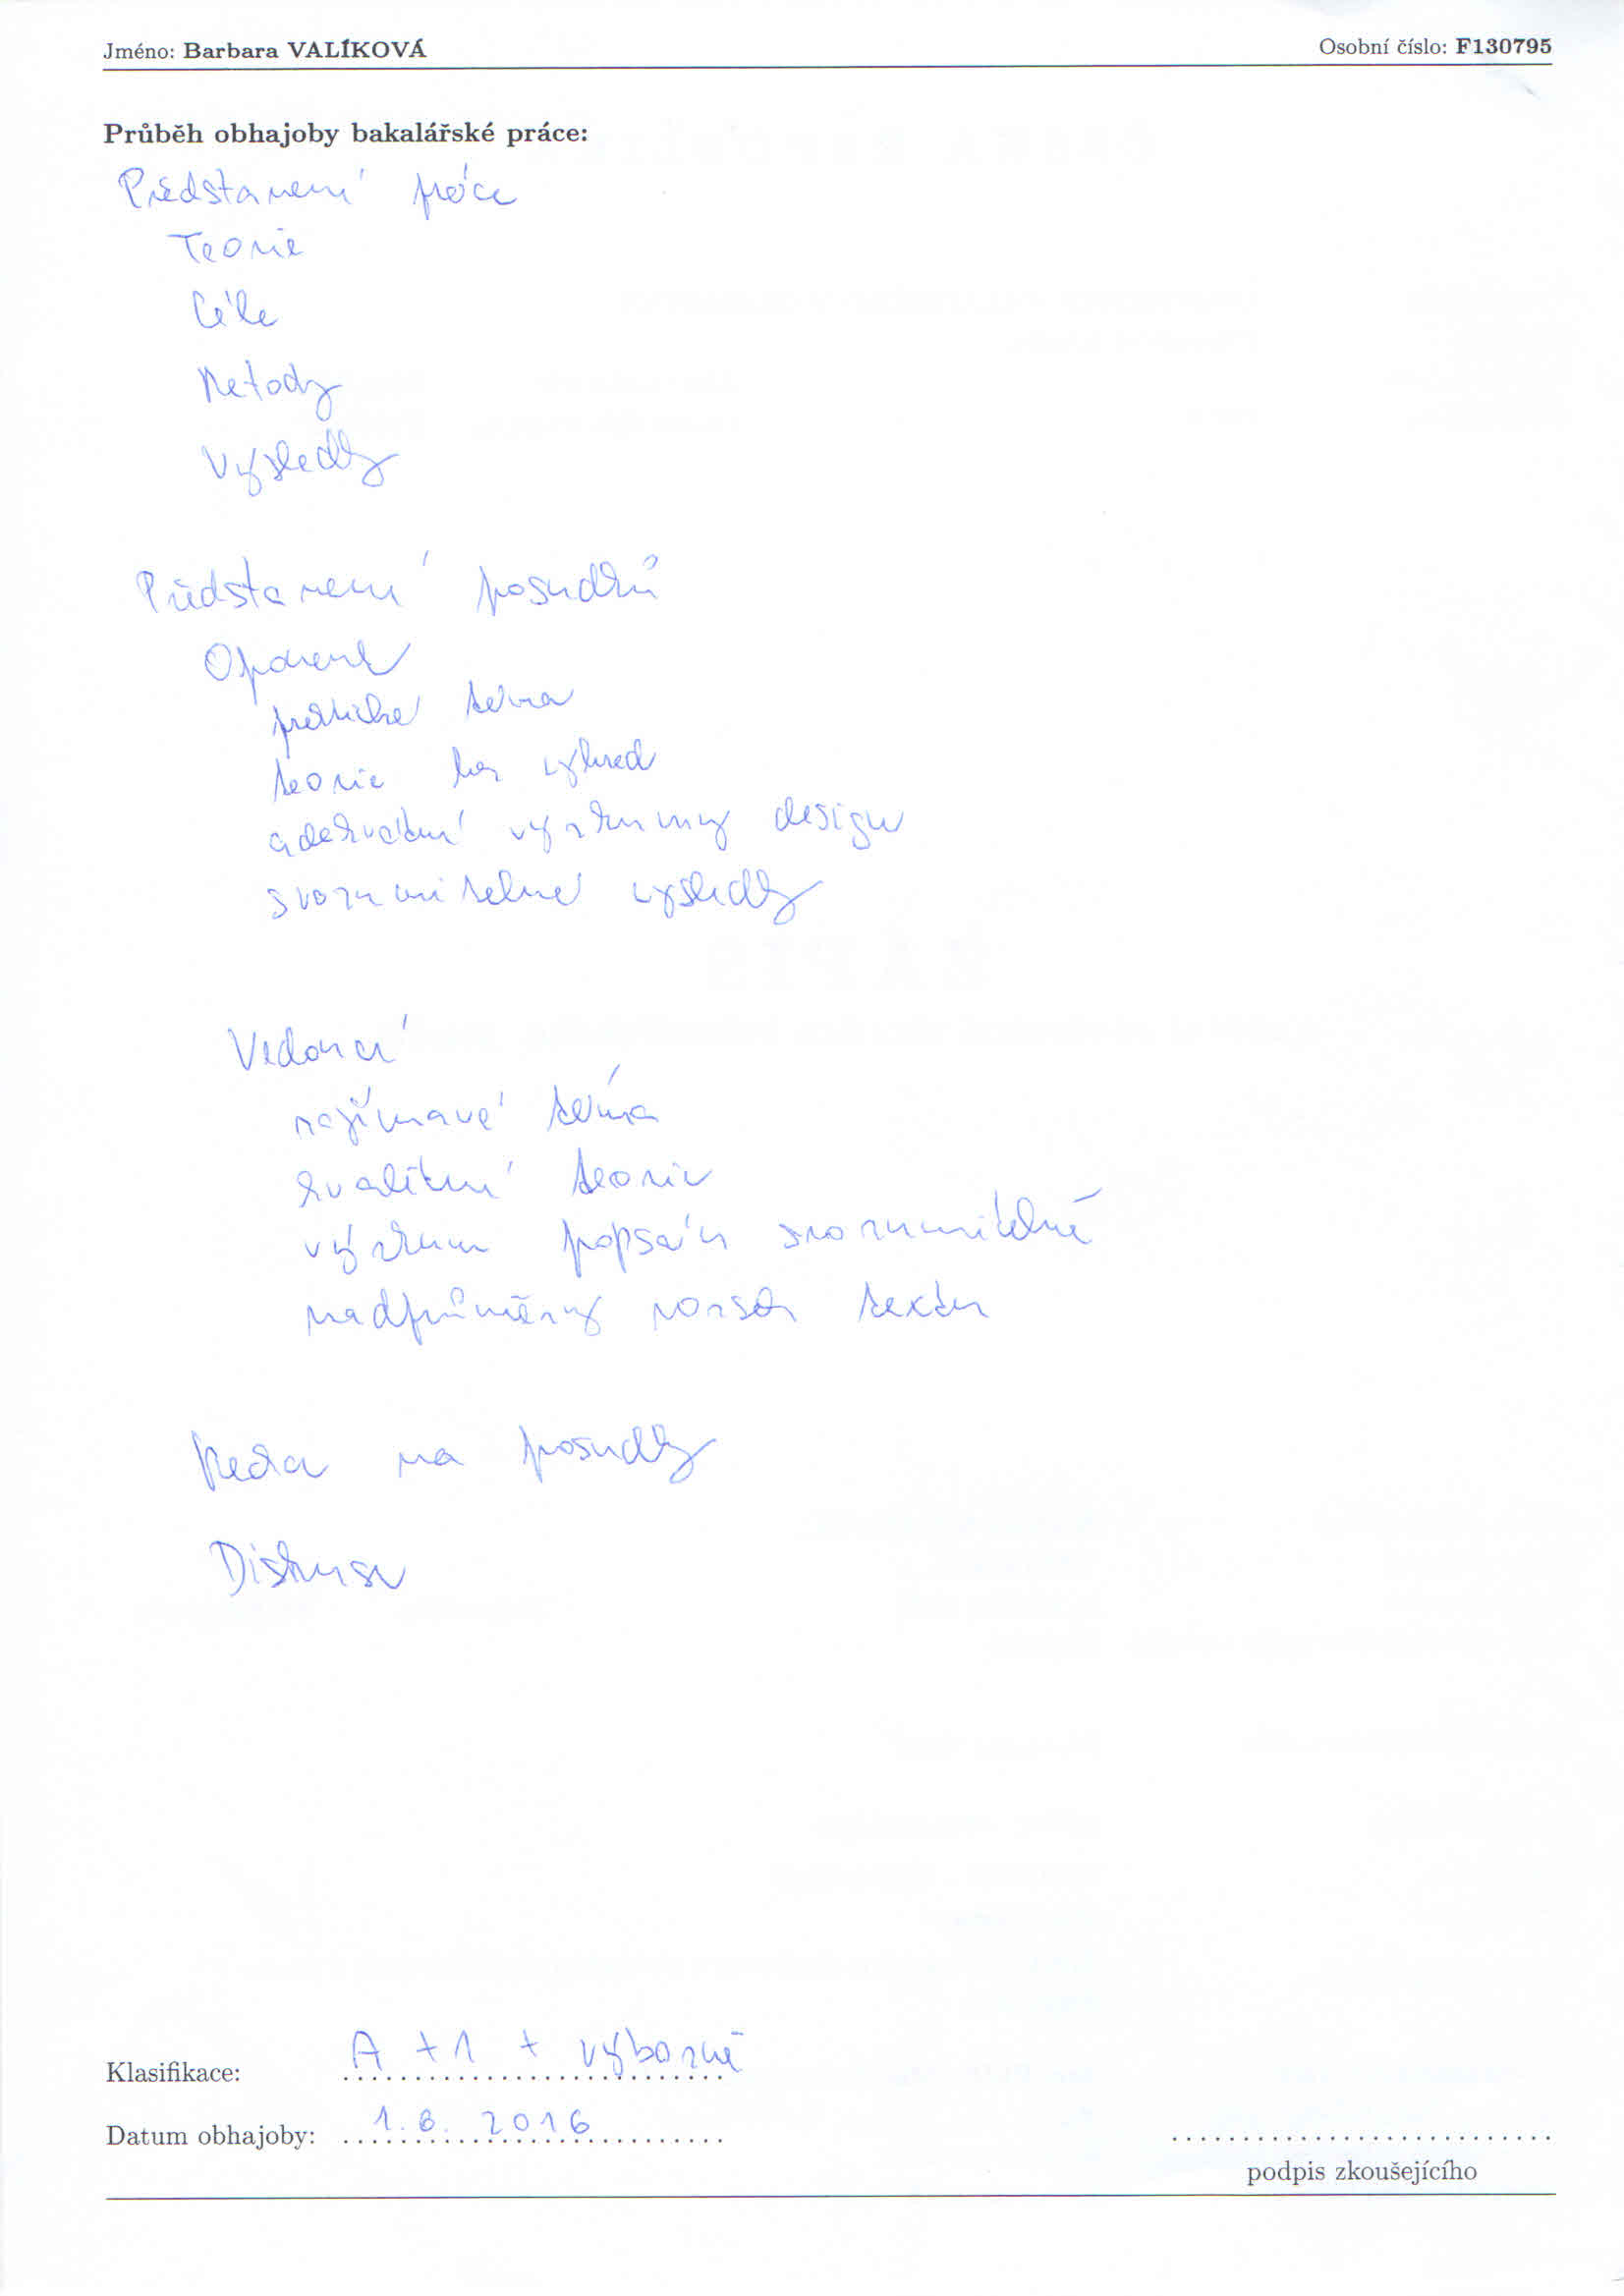 Jméno: Barbara VALÍKOVÁ Osobní číslo: F130795
Průběh obhajoby bakalářské práce:
Představení práce
Teorie
Cíle
Metody
Výsledky
Představení posudků
Oponent
praktické téma
teorie bez výhrad
adekvátní výzkumný design
srozumitelné výsledky
Vedoucí
zajímavé téma
kvalitní teorie
výzkum popsán srozumitelně
nadprůměrný rozsah textu
Reakce na posudky
Diskuse
Klasifikace: A + 1 + výborně
Datum obhajoby: 1. 6. 2016
podpis zkoušejícího